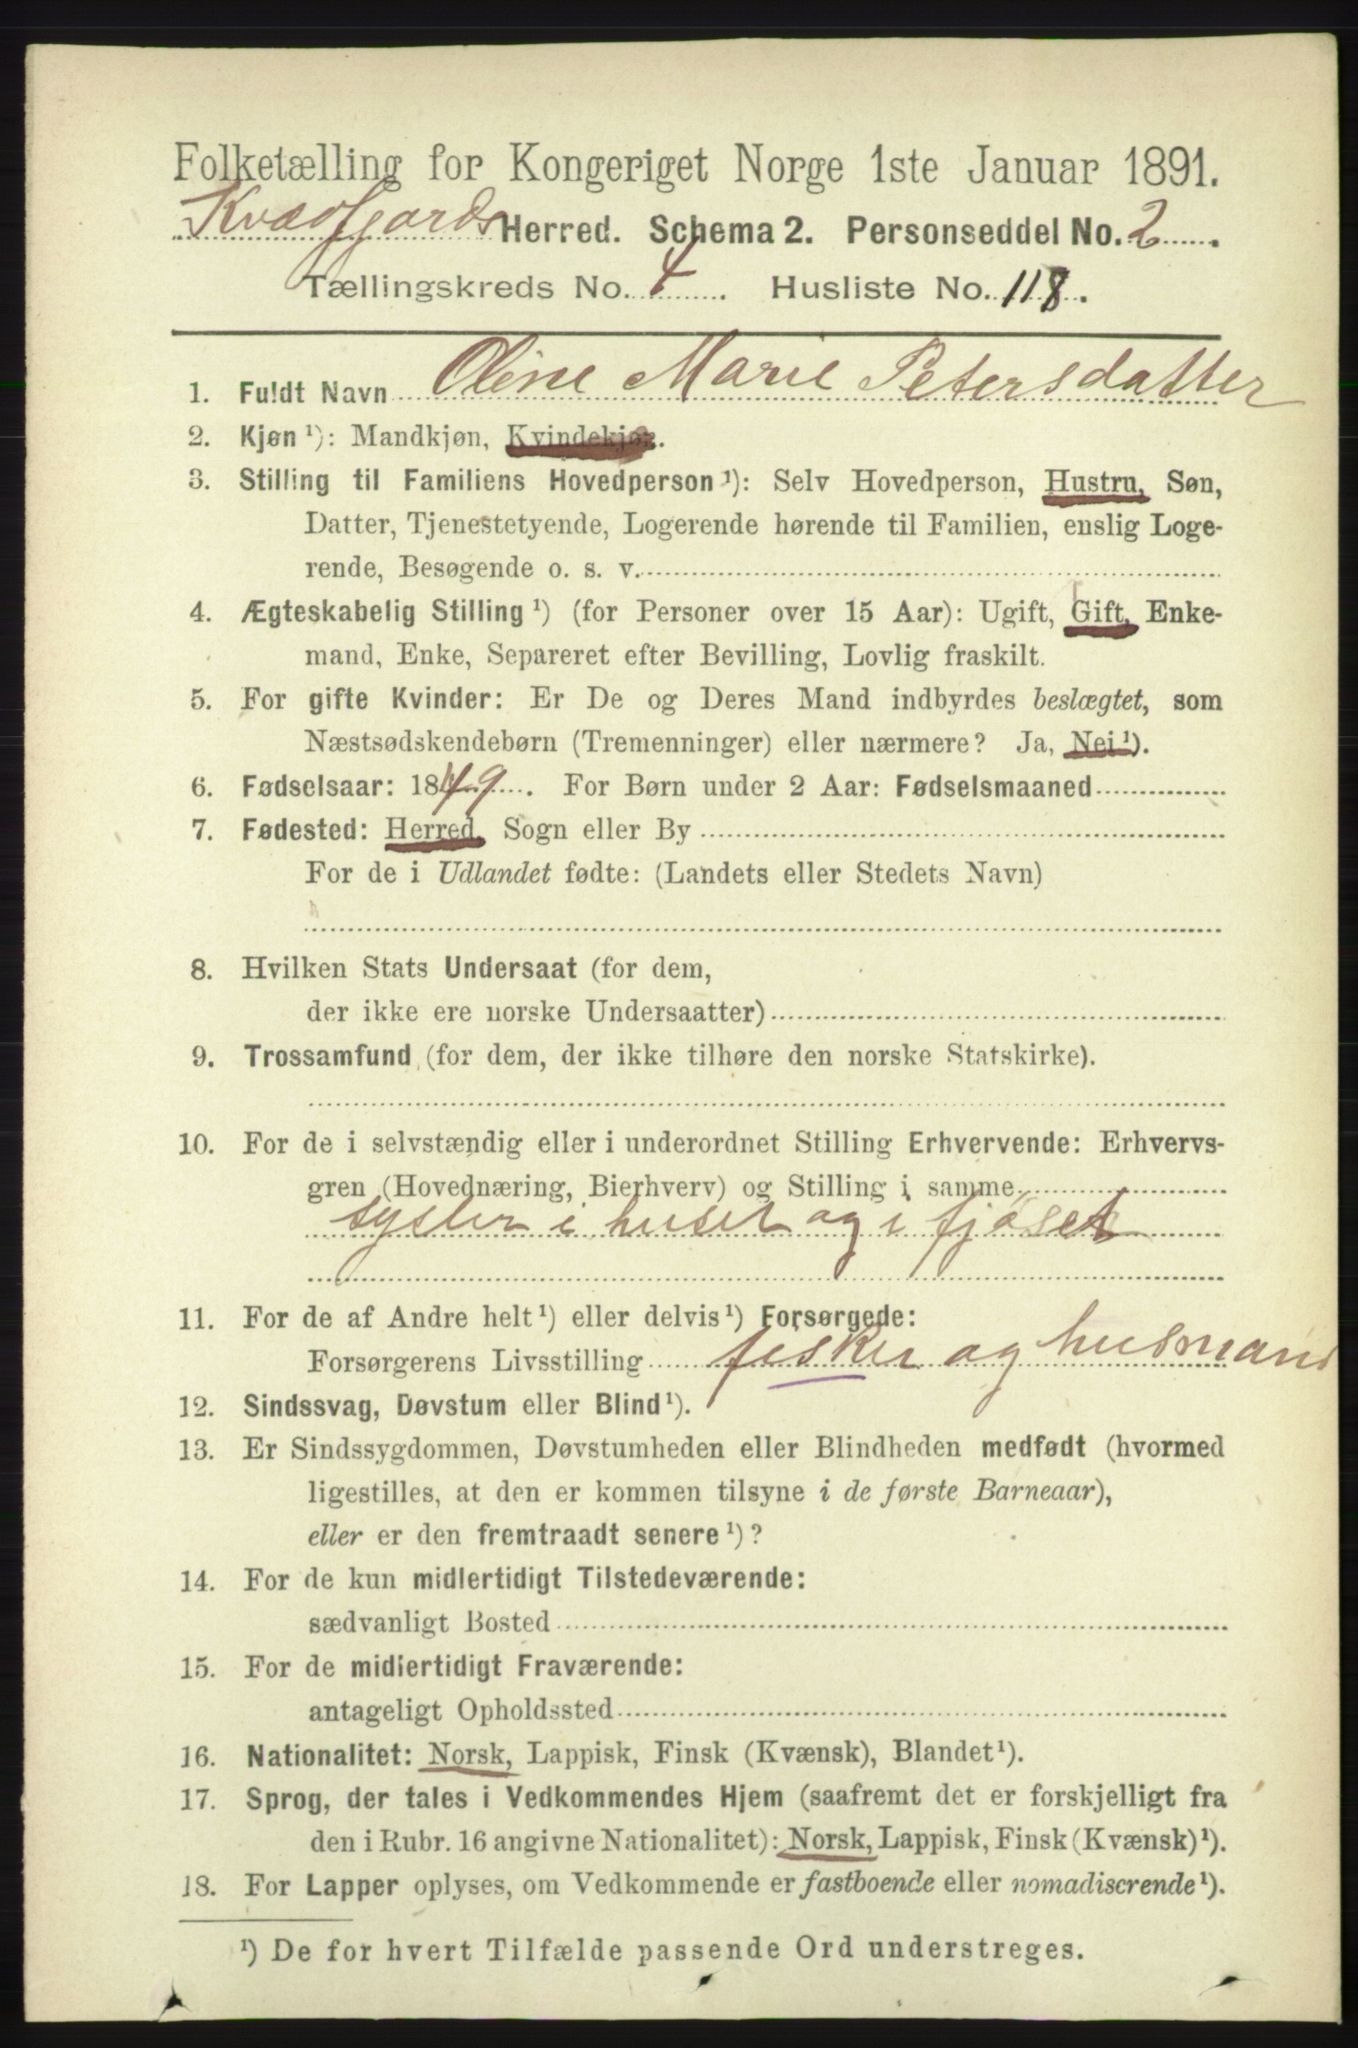 Folketælling for Kongeriget Norge 1ste Januar 1891.
Kvædfjords Herred. Schema 2. Personseddel No. 2.
Tællingskreds No. 4. Husliste No. 118.
1. Fuldt Navn Oline Marie Petersdatter
2. Kjøn ¹): Mandkjøn, Kvindekjøn.
3. Stilling til Familiens Hovedperson ¹): Selv Hovedperson, Hustru, Søn,
Datter, Tjenestetyende, Logerende hørende til Familien, enslig Loge-
rende, Besøgende o. s. v.
4. Ægteskabelig Stilling ¹) (for Personer over 15 Aar): Ugift, Gift, Enke-
mand, Enke, Separeret efter Bevilling, Lovlig fraskilt.
5. For gifte Kvinder: Er De og Deres Mand indbyrdes beslægtet, som
Næstsødskendebørn (Tremenninger) eller nærmere? Ja, Nei ¹).
6. Fødselsaar: 1849. For Børn under 2 Aar: Fødselsmaaned
7. Fødested: Herred, Sogn eller By
For de i Udlandet fødte: (Landets eller Stedets Navn)
8. Hvilken Stats Undersaat (for dem,
der ikke ere norske Undersaatter)
9. Trossamfund (for dem, der ikke tilhøre den norske Statskirke).
10. For de i selvstændig eller i underordnet Stilling Erhvervende: Erhvervs-
gren (Hovednæring, Bierhverv) og Stilling i samme
sysler i huset og i fjøset
11. For de af Andre helt ¹) eller delvis ¹) Forsørgede:
Forsørgerens Livsstilling fisker og husmand
12. Sindssvag, Døvstum eller Blind ¹).
13. Er Sindssygdommen, Døvstumheden eller Blindheden medfødt (hvormed
ligestilles, at den er kommen tilsyne i de første Barneaar),
eller er den fremtraadt senere ¹)?
14. For de kun midlertidigt Tilstedeværende:
sædvanligt Bosted
15. For de midlertidigt Fraværende:
antageligt Opholdssted
16. Nationalitet: Norsk, Lappisk, Finsk (Kvænsk), Blandet ¹).
17. Sprog, der tales i Vedkommendes Hjem (saafremt det er forskjelligt fra
den i Rubr. 16 angivne Nationalitet): Norsk, Lappisk, Finsk (Kvænsk) ¹).
18. For Lapper oplyses, om Vedkommende er fastboende eller nomadiserende ¹).
¹) De for hvert Tilfælde passende Ord understreges.